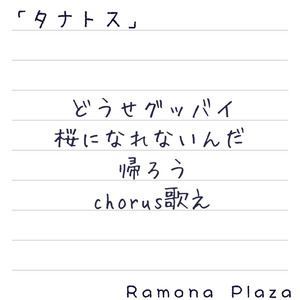 「タナトス」
どうせグッバイ
桜になれないんだ
帰ろう
chorus歌え
Ramona Plaza